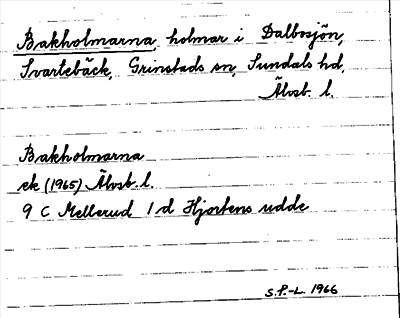 Bakholmarna, holmar i Dalbosjön,
Svartebäck, Grinstads sn, Sundals hd,
Älvsb. l.
Bakholmarna
ek (1965) Älvsb. l.
9 C Mellerud 1 d Hjortens udde
S.P.-L. 1966